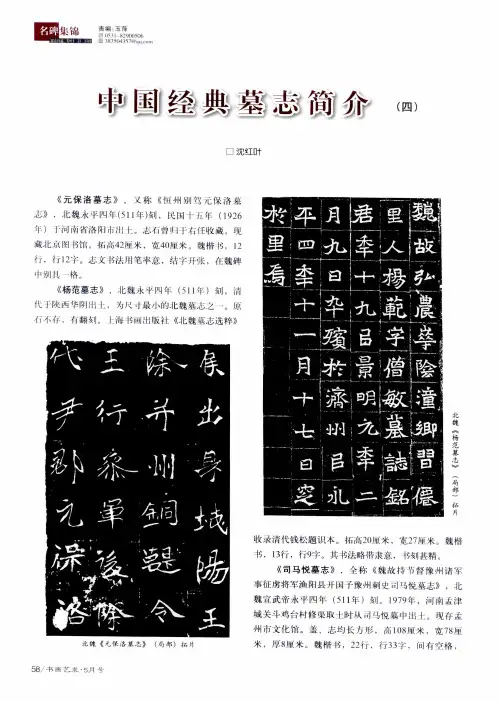 名碑集锦
责编:玉萍
0531-82900506
383564357@qq.com
中国经典墓志简介 (四)
□ 沈红叶
《元保洛墓志》，又称《恒州别驾元保洛墓
志》，北魏永平四年(511年)刻，民国十五年（1926
年）于河南省洛阳市出土。志石曾归于右任收藏，现
藏北京图书馆。拓高42厘米，宽40厘米。魏楷书，12
行，行12字。志文书法用笔率意，结字开张，在魏碑
中别具一格。
《杨范墓志》，北魏永平四年（511年）刻，清
代于陕西华阴出土，为尺寸最小的北魏墓志之一。原
石不存，有翻刻。上海书画出版社《北魏墓志选粹》
侯出身城阳王
除并州铜鞮令
王行参军后除
代尹郡元保洛
北魏《元保洛墓志》（局部）拓片
魏故弘農華陰潼鄉習僊
里人楊範字僧敏墓誌銘
君年十九吕景明元年二
月九日卒殯於濟州吕永
平四年十一月十七日窆
於里焉
北魏《杨范墓志》（局部）拓片
收录清代钱松题识本。拓高20厘米，宽27厘米。魏楷
书，13行，行9字。其书法略带隶意，书刻甚精。
《司马悦墓志》，全称《魏故持节督豫州诸军
事征虏将军渔阳县开国子豫州刺史司马悦墓志》，北
魏宣武帝永平四年（511年）刻。1979年，河南孟津
城关斗鸡台村修渠取土时从司马悦墓中出土。现存孟
州市文化馆。盖、志均长方形，高108厘米，宽78厘
米，厚8厘米。魏楷书，22行，行33字，间有空格，
58/书画艺术·5月号